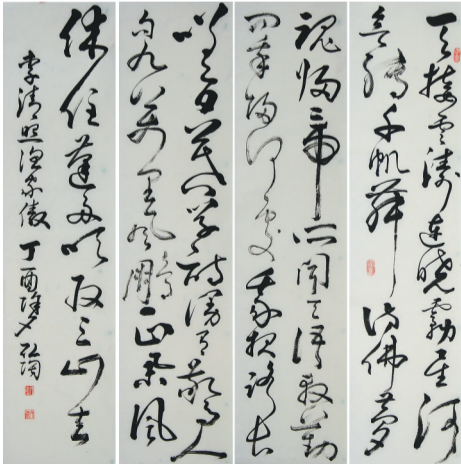 天接雲濤連曉霧星河
欲轉千帆舞彷彿夢
魂歸帝所聞天語殷勤
問我歸何處我報路長
嗟日暮學詩謾有驚人
句九萬里風鵬正舉風
休住蓬舟吹取三山去
李清照漁家傲 丁酉